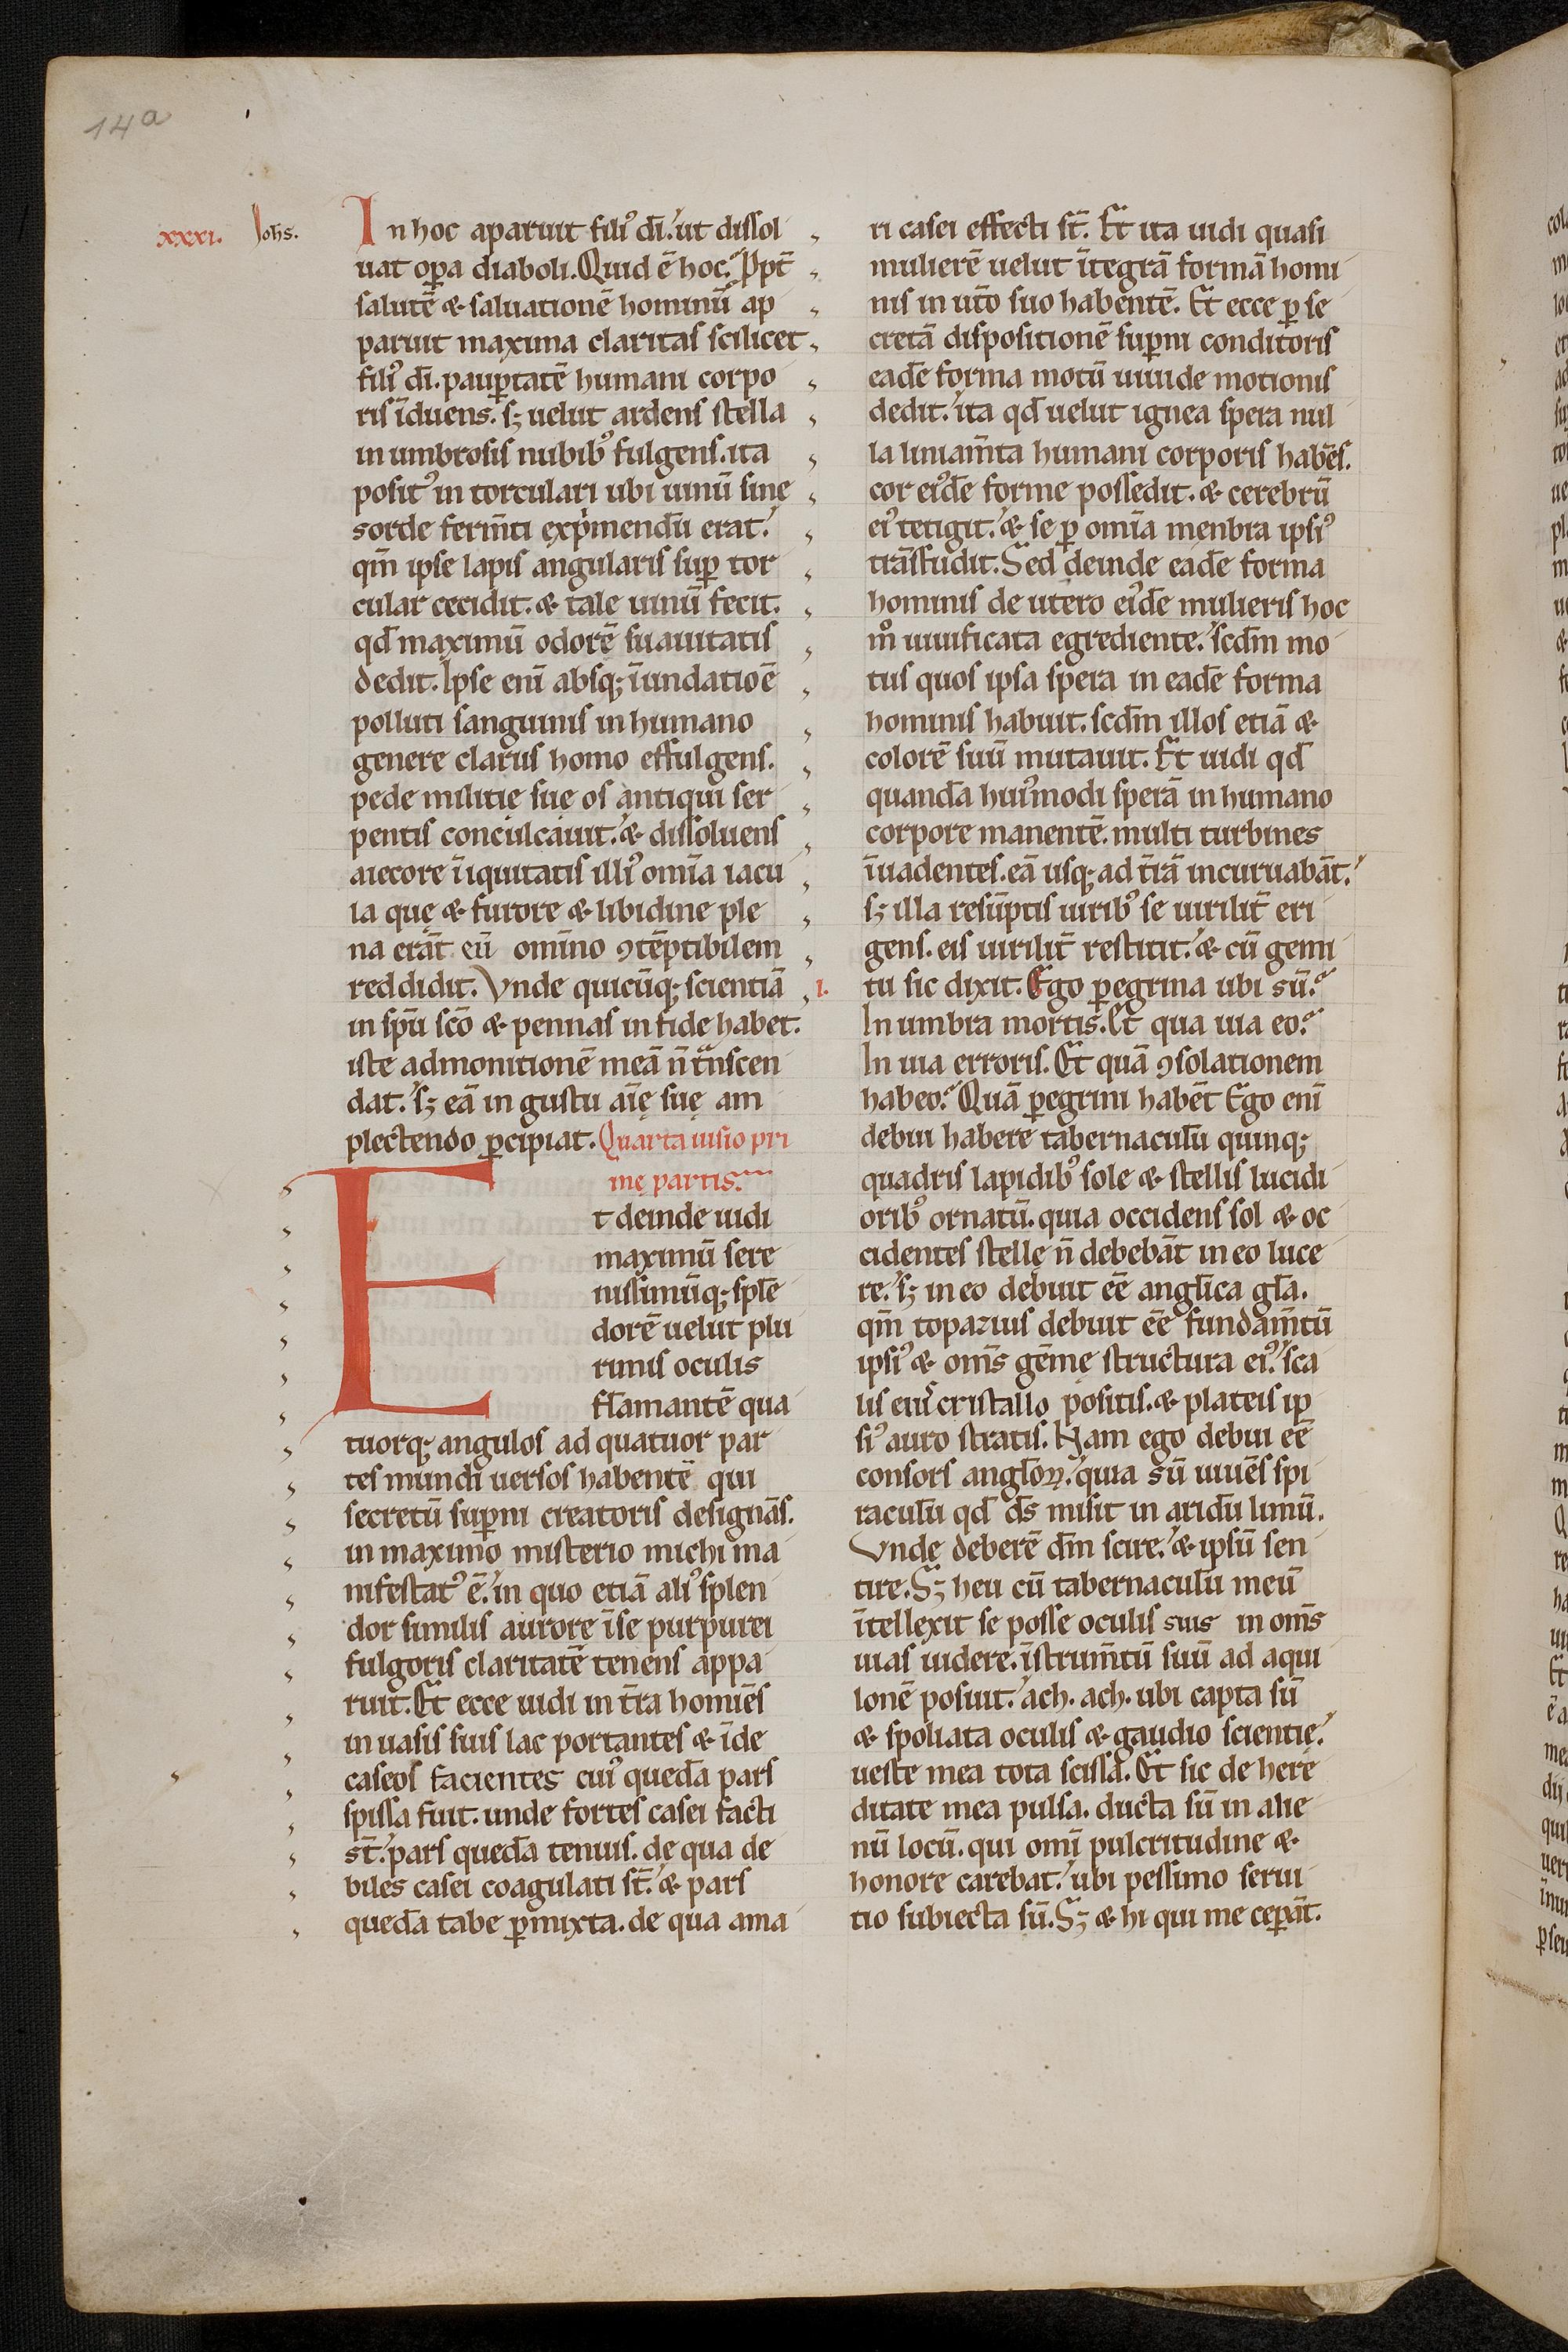 14a
xxxi. Johs.
In hoc aparuit filiꝰ dī. ut dissol
uat oꝑa diaboli. Quid ē hoc? Ppt̄
salutē & saluationē hominū ap
paruit maxima claritas scilicet
filiꝰ dī. pauꝑtatē humani corpo
ris īduens. sꝫ uelut ardens stella
in umbrosis nubibꝰ fulgens. ita
positꝰ in torculari ubi uinū sine
sorde ferm̄ti exp̍mendū erat.
qm̄ ipse lapis angularis suꝑ tor
cular cecidit. & tale uinū fecit.
qd̄ maximū odorē suauitatis
dedit. Ipse eni absqꝫ īundatioē
polluti sanguinis in humano
genere clarus homo effulgens.
pede militię suę os antiqui ser
pentis conculcauit. & dissoluens
aiecore īiquitatis illiꝰ om̄ia iacu
la quę & furore & libidine ple
na erāt eū om̄ino ꝯtēptibilem
reddidit. Vnde quicūqꝫ scientiā
in spū sc̄o & pennas in fide habet.
iste admonitionē meā n̄ t̄nscen
dat. sꝫ eā in gustu aīę suę am
plectendo ꝑcipiat. Quarta uisio pri
mę partis.
Et deinde uidi
maximū sere
nissimūqꝫ splē
dorē uelut plu
rimis oculis
flamantē qua
tuorqꝫ angulos ad quatuor par
tes mundi uersos habentē qui
secretū suꝑni creatoris designās.
in maximo misterio michi ma
nifestatꝰ ē. in quo etiā aliꝰ splen
dor similis aurore īse purpurei
fulgoris claritatē tenens appa
ruit. Et ecce uidi in t̄ra homiēs
in uasis suis lac portantes & īde
caseos facientes cuiꝰ quedā pars
spissa fuit. unde fortes casei facti
st̄. pars quedā tenuis. de qua de
biles casei coagulati st̄. & pars
quedā tabe ꝑmixta. de qua ama
ri casei effecti st̄. Et ita uidi quasi
mulierē uelut ītegrā formā homi
nis in ut̄o suo habentē. Et ecce ꝑ se
cretā dispositionē suꝑni conditoris
eadē forma motū uiuide motionis
dedit. ita qd̄ uelut ignea spera nul
la liniam̄ta humani corporis habēs.
cor eiꝰdē forme possedit. & cerebrū
eiꝰ tetigit. & se ꝑ omīa menbra ipsiꝰ
trāsfudit. Sed deinde eadē forma
hominis de utero eiꝰdē mulieris hoc
mo uiuificata egrediente. scdm̄ mo
tus quos ipsa spera in eadē forma
hominis habuit. scdm̄ illos etiā &
colorē suū mutauit. Et uidi qd̄
quandā huiꝰmodi sperā in humano
corpore manentē. multi turbines
īuadentes. eā usqꝫ ad t̄rā incuruabāt.
sꝫ illa resūptis uiribꝰ se uirilit̄ eri
gens. eis uirilit̄ restitit. & cū gemi
i. tu sic dixit. Ego ꝑegrina ubi sū?
In umbra mortis. Et qua uia eo?
In uia erroris. Et quā ꝯsolationem
habeo? Quā ꝑegrini habēt Ego eni
debui habere tabernaculū quinqꝫ
quadris lapidibꝰ sole & stellis lucidi
oribꝰ ornatū. quia occidens sol & oc
cidentes stellę n̄ debebāt in eo luce
re. sꝫ in eo debuit eē angl̄ica gl̄a.
qm̄ topazius debuit eē fundam̄tū
ipsiꝰ & om̄s gēmę structura eiꝰ. sca
lis eiꝰ cristallo positis. & plateis ip
siꝰ auro stratis. Nam ego debui eē
consors angl̄oꝝ. quia sū uiuēs spi
raculū qd̄ d̄s misit in aridū limū.
Vnde deberē dm̄ scire. & ipsū sen
tire. Sꝫ heu cū tabernaculū meū
ītellexit se posse oculis suis in om̄s
uias uidere. īstrum̄tū suū ad aqui
lonē posuit. ach. ach. ubi capta sū
& spoliata oculis & gaudio scientię.
ueste mea tota scissa. Et sic de here
ditate mea pulsa. ducta sū in alie
nū locū. qui omi pulcritudine &
honore carebat. ubi pessimo serui
tio subiecta sū. Sꝫ & hi qui me ceꝑāt.